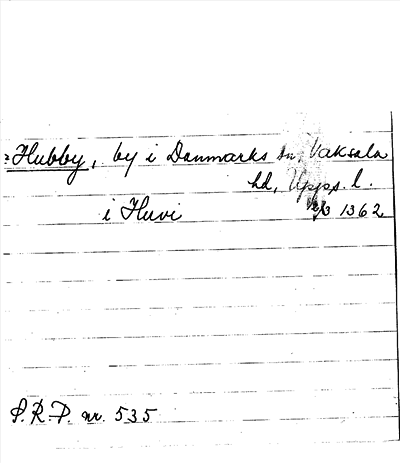 Hubby, by i Danmarks sn, Vaksala
hd, Upps. l.
i Huvi 1362
S.R.P. nr. 535